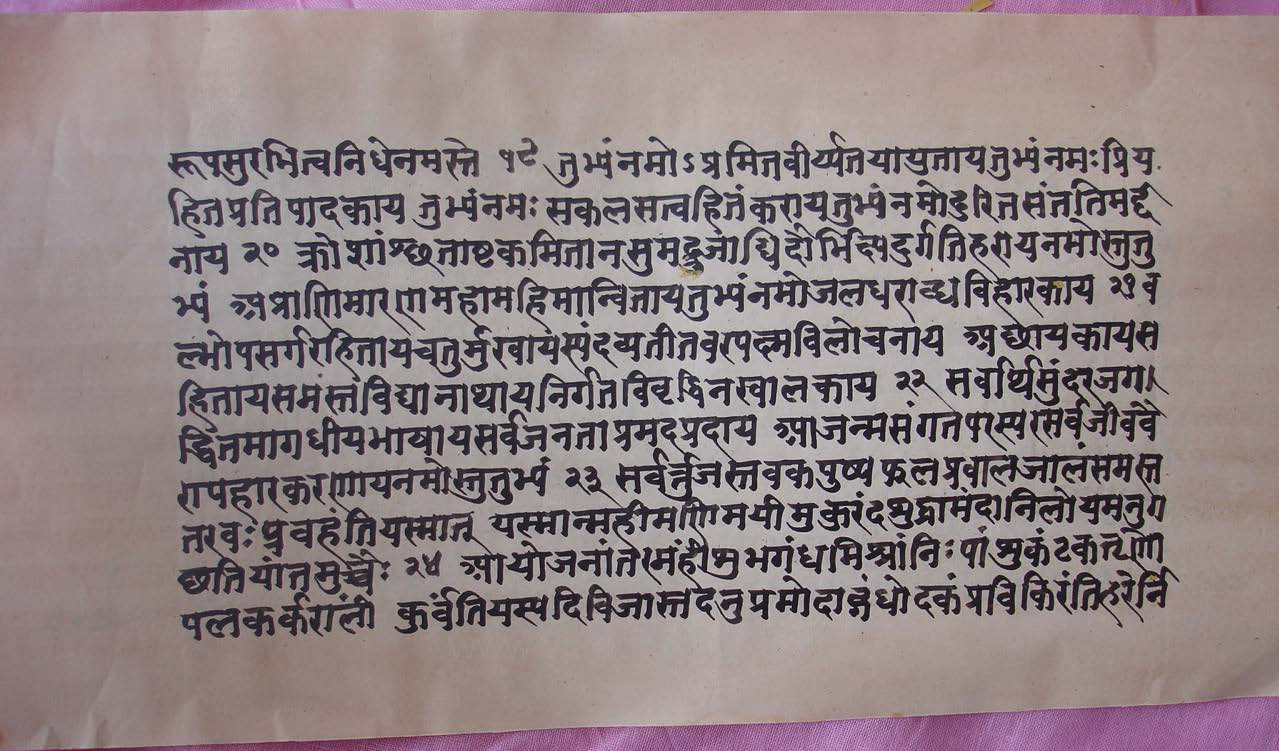 रूपसुरभित्वनिधेनमस्ते १९ तुभ्यंनमोऽप्रमितवीर्य्यतयायुतायतुभ्यंनमःप्रिय
हितप्रतिपादकाय तुभ्यंनमः सकलसत्वहितंकरायतुभ्यंनमोदुरितसंततिमर्द्द
नाय २० क्रोशांश्छताष्टकमितानसुमद्व्रजांघ्रिदौर्भिक्ष्यदुर्गतिहरायनमोस्तुतु
भ्यं अप्राणिमारणमहामहिमान्वितायतुभ्यंनमोजलधराध्वविहारकाय २१ व
ल्भोपसर्गरहितायचतुर्मुखायस्पंदव्यतीतवरपक्ष्मविलोचनाय अछायकायस
हितायसमस्तविद्यानाथायनिर्गतविवृद्धिनखालकाय २२ सर्वार्थसुंदरजग
द्धितमागधीयभाषायसर्वजनताप्रमदप्रदाय आजन्मसंगतपरस्परसर्वजीववै
रापहारकरणायनमोस्तुतुभ्यं २३ सर्वर्तुजस्तवकपुष्पफलप्रवालजालंसमस्त
तरवःप्रवहंतियस्मात् यस्मान्महीमणिमयीमुकुरंदभुद्घामंदानिलोयमनुग
छतियांतमुच्चैः २४ आयोजनांतरमहींशुभगंधमिश्रांनिःपांशुकंटकतृणो
पलकर्करालीं कुर्वंतियस्यदिविजास्तदनुप्रमोदाद्गंधोदकंप्रविकिरंतिहरेर्नि